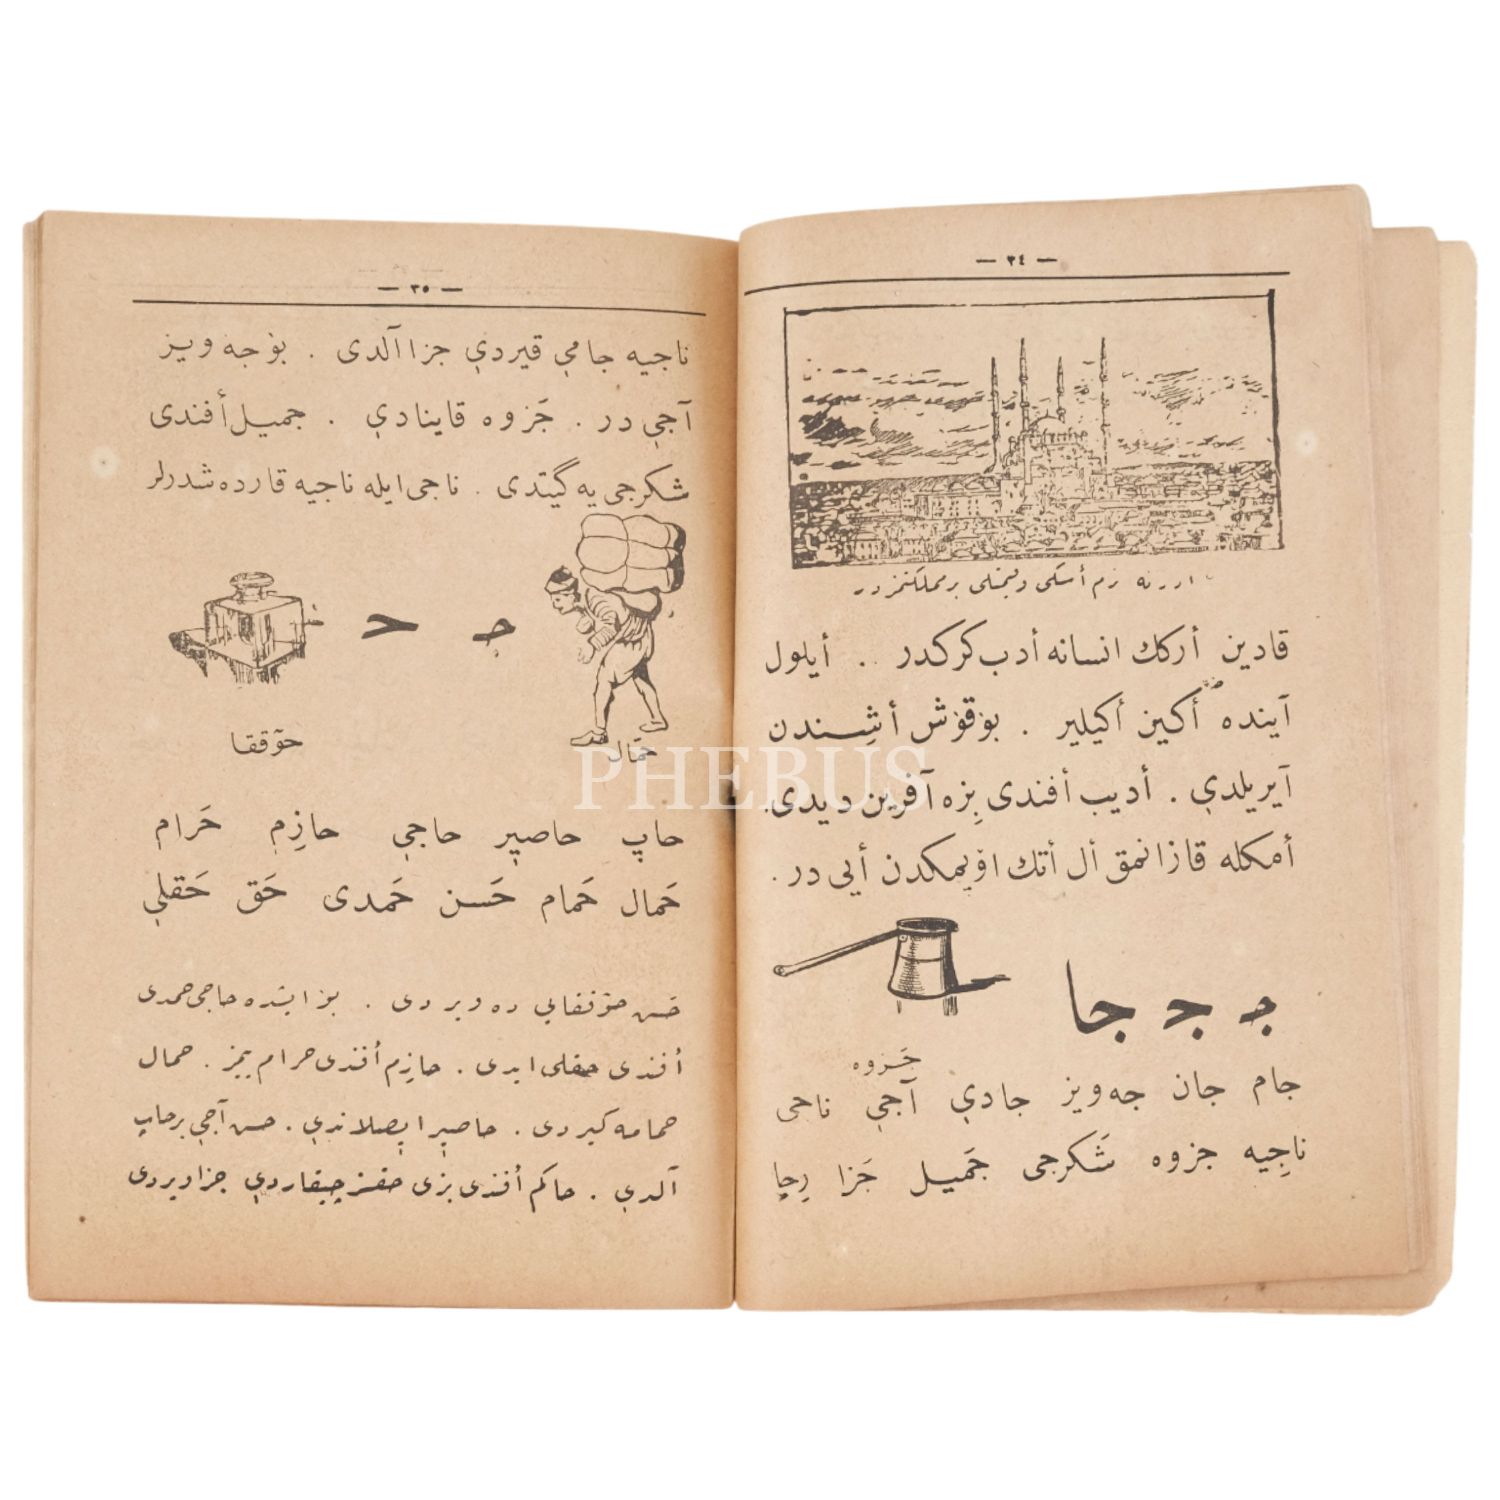 — ٣٤ —
ادرنه بزم أسكی و قیمتلی بر مملكتمزدر
قادین أركك انسانه أدب كركدر . أیلول
آینده أكین أكیلیر . بوٚقوٚش أشِندن
آیریلدیٖ . أدیب أفندی بِزه آفرین دیدی.
أمكله قازانمق أل أتك اوٚپمكدن أیی در .
جـ ـجـ جا
جَـزوه
جام جان جه‌ویز جادیٖ آجیٖ ناجی
ناجِیه جزوه شَكرجی جَمیل جَزا رِجا
— ٣٥ —
ناجیه جامیٖ قیردیٖ جزا آلدی . بوٚ جه ویز
آجیٖ در . جَزوه قاینادیٖ . جمیل أفندی
شكرجی یه گیتدی . ناجی ایله ناجیه قارده شدرلر
جـ حـ
حمّال
حوٚققا
حاپ حاصیٖر حاجیٖ حازِم حَرام
حَمال حَمام حَسن حَمدی حَق حَقلیٖ
حَسن حوٚققایی ده ویر دی . بوٚ ایشده حاجی حمدی
أفندی حقلی ایدی . حازِم أفندی حرام یمِز . حمال
حمامه كیردی . حاصیٖر ایٖصلاندیٖ . حسن آجیٖ بر حاپ
آلدیٖ . حاكم أفندی بزی حقسز چیقاردیٖ جزا ویردی
PHEBUS